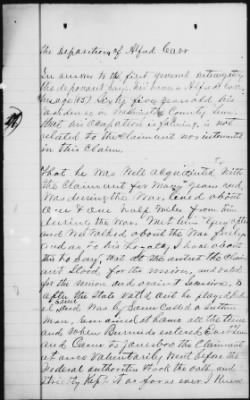 The deposition of Alfred Carr
In answer to the first general interrogatory
the deponent says his name is Alfred Carr
his age (65) Sixty five years old his
residence on Washington County Tenn
that his occupation is farming, is not
related to the Claimant nor interested
in this Claim.
That he was Well acquainted with
the Claimant for Many years and
Was during the War, lived about
One & One half miles from him
during the War. Met him
and We talked about the War
and as to his Loyalty I have about
this to Say, that at the outset the Claim
ant Stood for the union, and voted
for the union and against Secession, &
after the State voted out he
and was by Some Called a
man, remained at home all the time
and When Burnside entered East Tenn
and Came to Jonesboro the Claimant
at once Voluntarily Went before the
Federal authorities & took the oath, and
strictly Kept it as far as ever I Knew